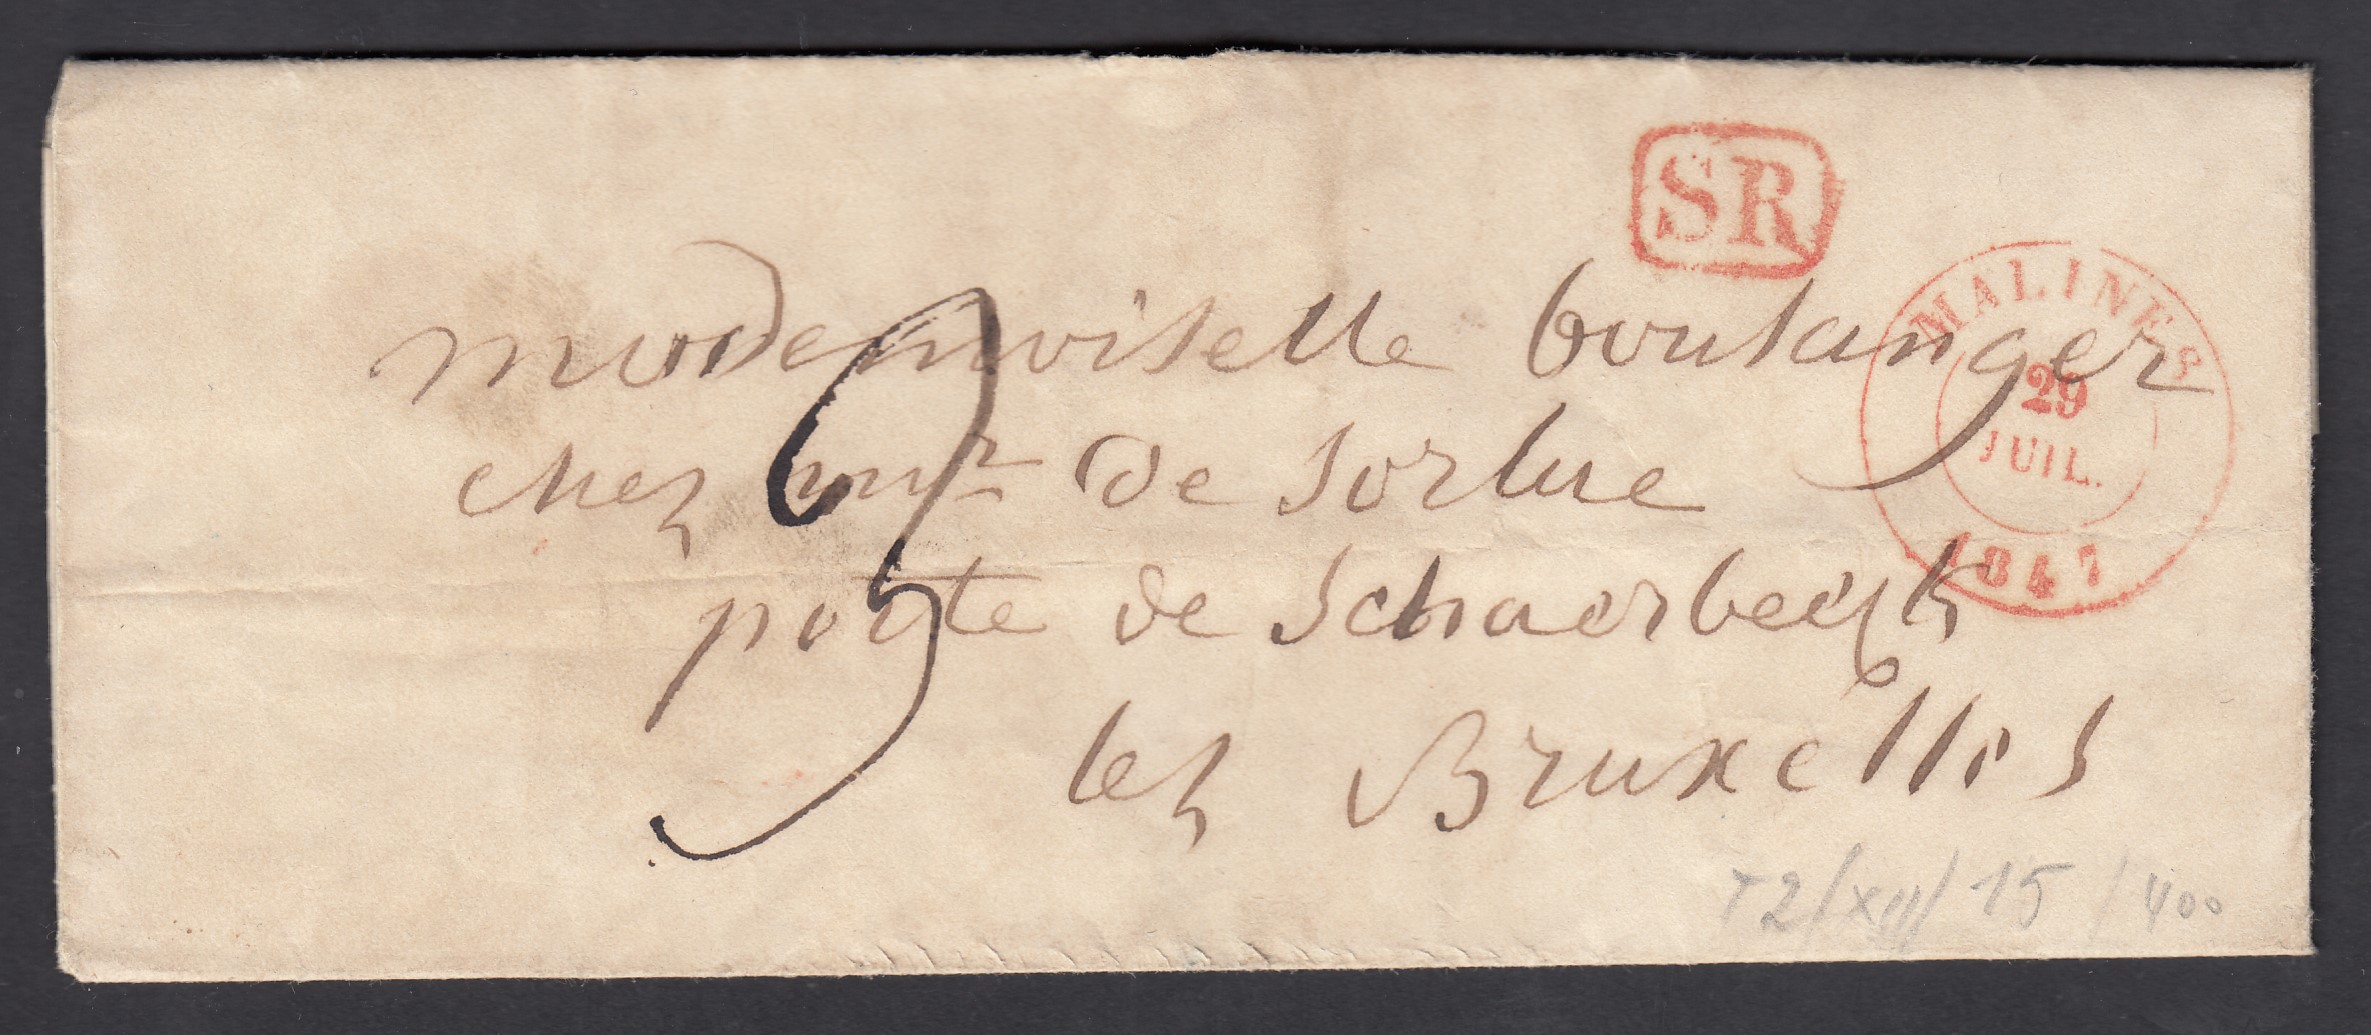 SR
MALINES
29
JUIL.
1847
modemoiselle boulanger
chez mr de Sorlue
porte de Schaerbeek
lez Bruxelles
3
T2/XIII/15/400